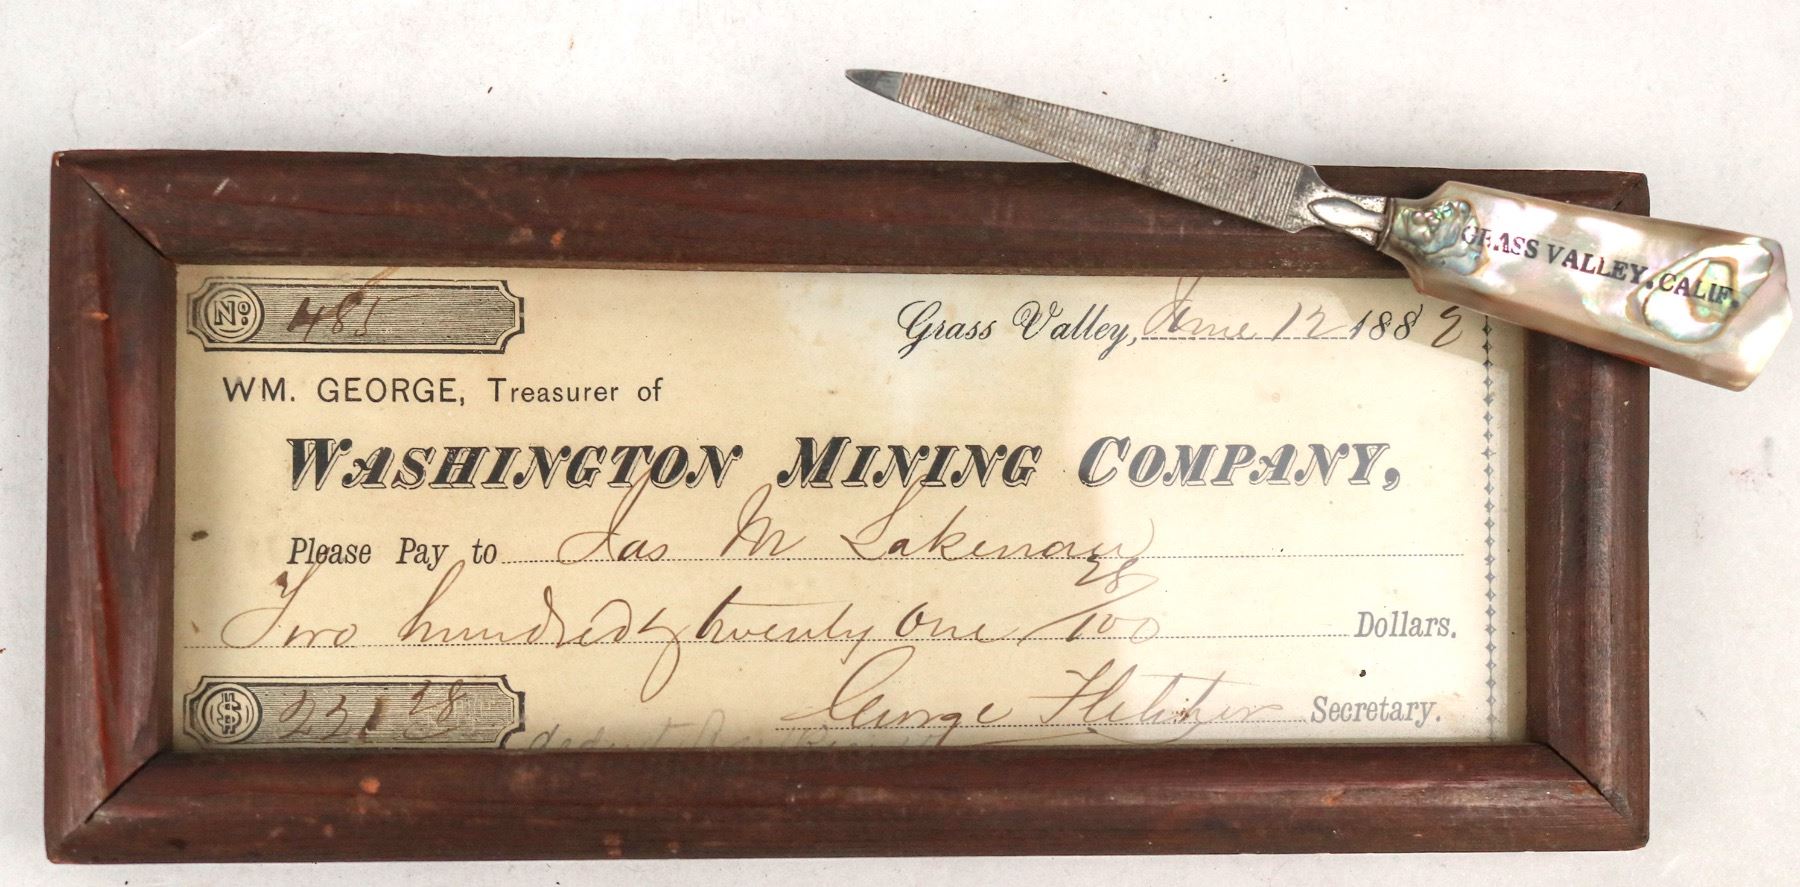 GRASS VALLEY, CALIF.
No. 485
Grass Valley, June 12 1882
WM. GEORGE, Treasurer of
WASHINGTON MINING COMPANY,
Please Pay to Jas M Lakenan
Two hundred & twenty one 38/100 Dollars.
$ 221 38
George Fletcher Secretary.